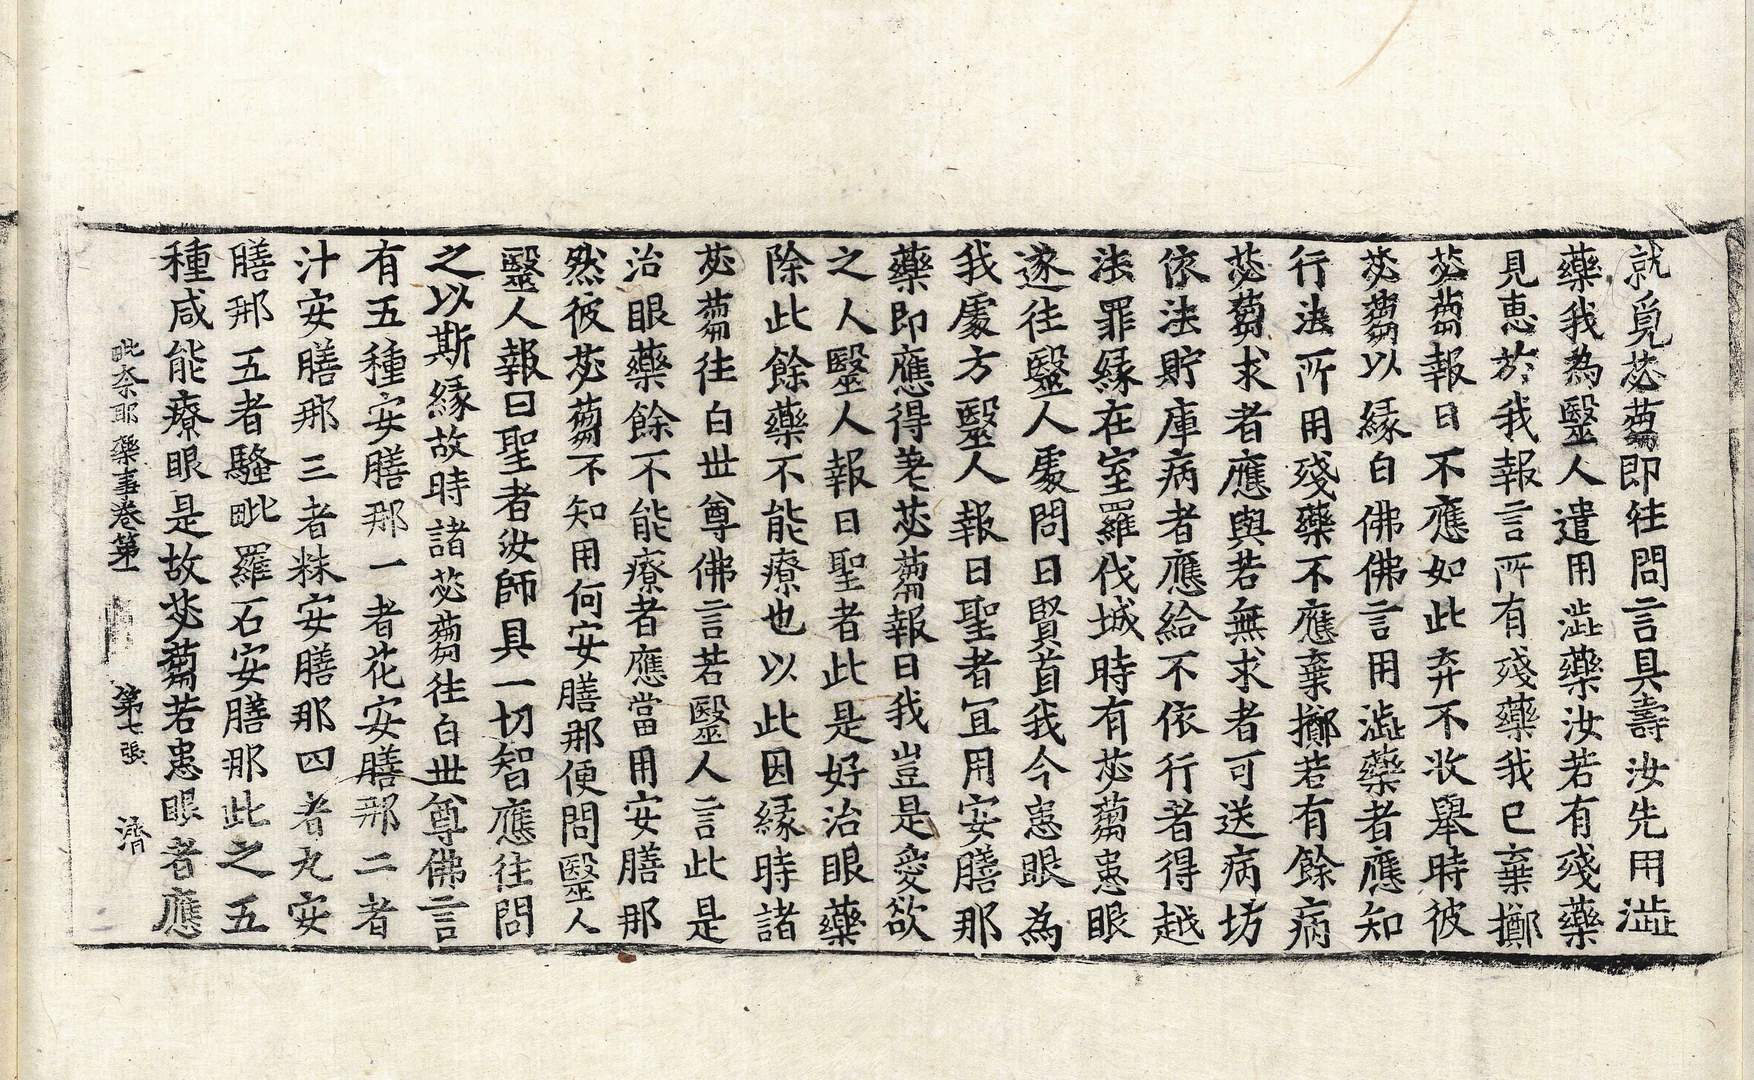 就覓苾蒭即往問言具壽汝先用澁
藥我為毉人遣用澁藥汝若有殘藥
見惠於我報言所有殘藥我已棄擲
苾蒭報曰不應如此弃不收舉時彼
苾蒭以緣白佛佛言用澁藥者應知
行法所用殘藥不應棄擲若有餘病
苾蒭求者應與若無求者可送病坊
依法貯庫病者應給不依行者得越
法罪緣在室羅伐城時有苾蒭患眼
遂往毉人處問曰賢首我今患眼為
我處方毉人報曰聖者宜用安膳那
藥即應得差苾蒭報曰我豈是愛欲
之人毉人報曰聖者此是好治眼藥
除此餘藥不能療也以此因緣時諸
苾蒭往白世尊佛言若毉人言此是
治眼藥餘不能療者應當用安膳那
然彼苾蒭不知用何安膳那便問毉人
毉人報曰聖者汝師具一切智應往問
之以斯緣故時諸苾蒭往白世尊佛言
有五種安膳那一者花安膳那二者
汁安膳那三者䊏安膳那四者丸安
膳那五者騷毗羅石安膳那此之五
種咸能療眼是故苾蒭若患眼者應
毗奈耶藥事卷第一 第七張 濟